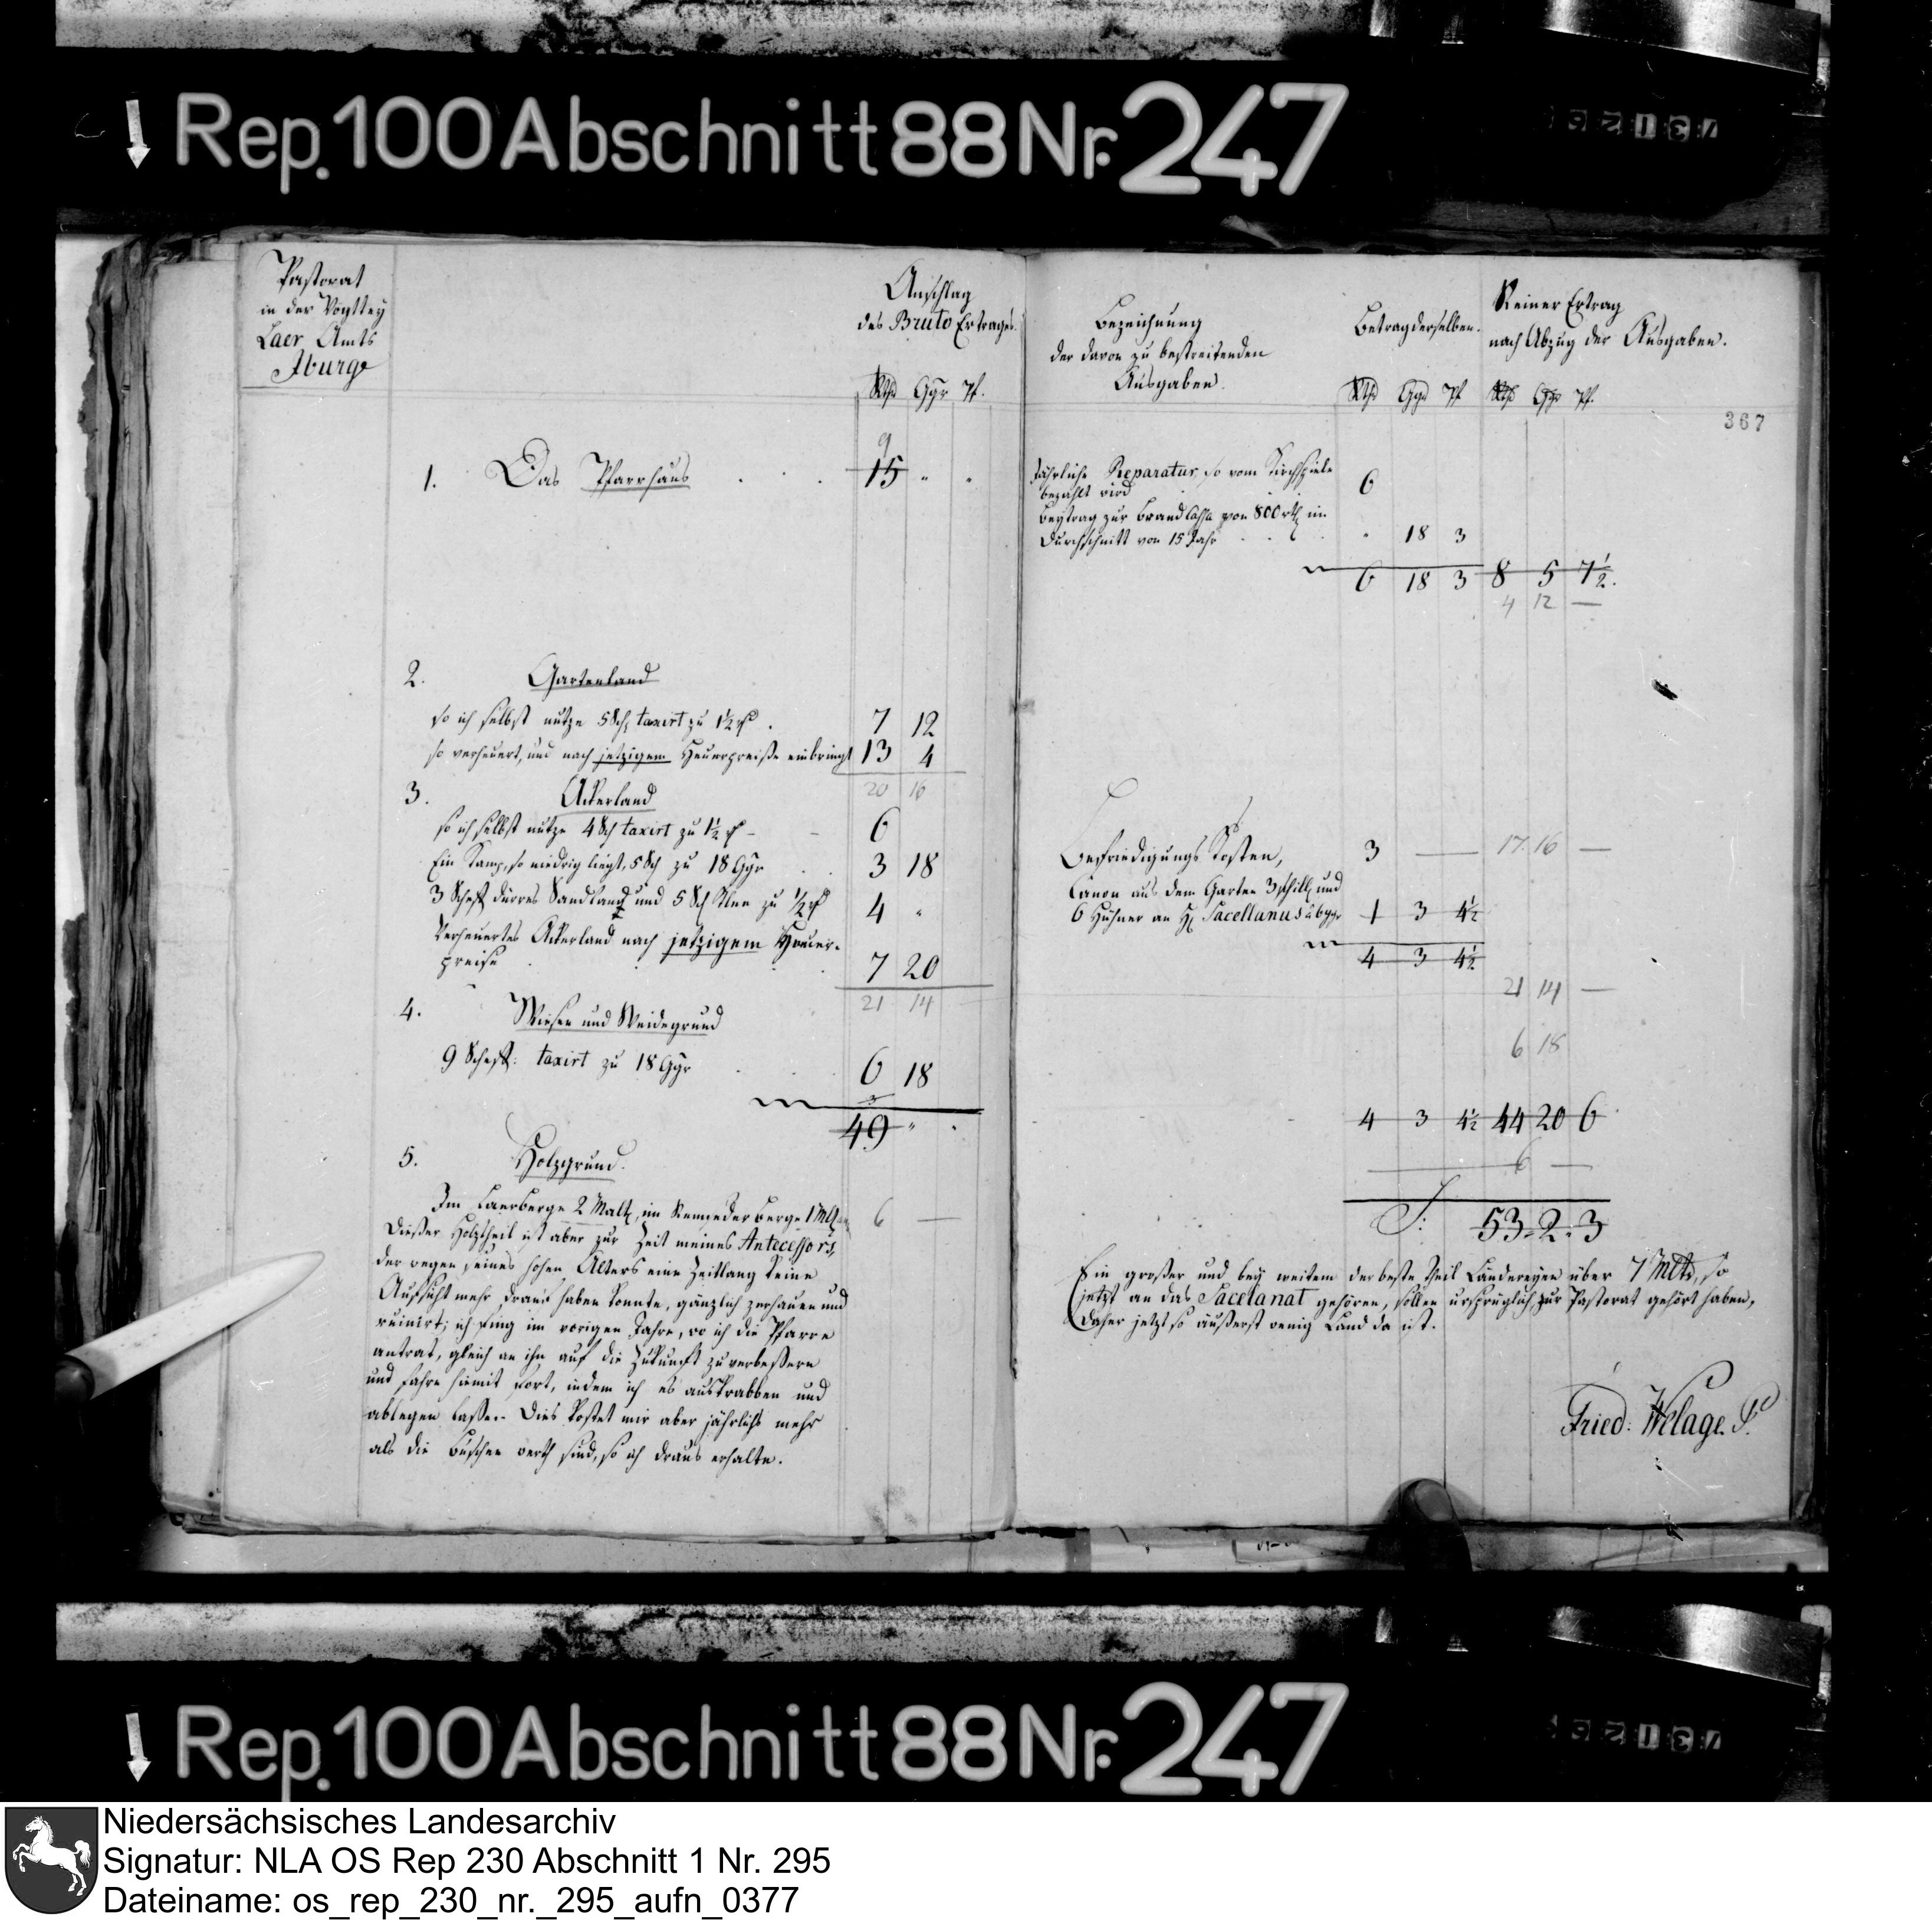 Rep.100 Abschnitt 88 Nr. 247
Pastorat
in der Vogttey
Laer Amts
Iburg
Anschlag
des Bruto Ertrages.
Rthr Ggr Pf.
1. Das Pfarrhaus
9
15 " "
2. Gartenland
so ich selbst nutze 5 Sch taxirt zu 1½ . 7 12
so verheuert, und nach jetzigem Heuerpreiße einbringt 13 4
20 16
3. Ackerland
so ich selbst nutze 4 Sch taxirt zu 1½ - 6
Ein Kamp, so niedrig liegt, 5 Sch zu 18 Ggr 3 18
3 Scheff dürres Sandland und 5 Sch zu ½ 4 "
Verheuertes Ackerland nach jetzigem Heuer-
preise 7 20
21 14
4. Wiesen und Weidegrund
9 Scheff: taxirt zu 18 Ggr 6 18
49 " "
5. Holzgrund.
Im Laerberge 2 Malt, im berge 1 Mlt 6 —
Dießer Holztheil ist aber zur Zeit meines Antecessors,
der wegen seines hohen Alters eine Zeitlang keine
Aufsicht mehr drauf haben konnte, gänzlich zerhauen und
ruinirt; ich fing im vorigen Jahre, wo ich die Pfarre
antrat, gleich an ihn auf die Zukunft zu verbeßern
und fahre hiemit fort, indem ich es auskrabben und
ablegen laße. Dies kostet mir aber jährlich mehr
als die Buschen werth sind, so ich draus erhalte.
Bezeichnung
der davon zu bestreitenden
Ausgaben.
Betrag derselben.
Rthr Ggr Pf
Reiner Ertrag
nach Abzug der Ausgaben.
Rthr Ggr Pf.
367
Jährliche Reparatur, so vom Kirchspiele
bezahlt wird 6
Beytrag zur Brand Cassa von 800 rth im
Durchschnitt von 15 Jahr " 18 3
6 18 3 8 5 7½.
4 12 —
Befriedigungs Kosten, 3 — 17 16 —
Canon aus dem Garten 3 schill und
6 Hühner an H Sacellanus à 6 ggr 1 3 4½
4 3 4½
21 14 —
6 18
4 3 4½ 44 20 6
6 —
S: 53 " 2 " 3
Ein großer und bey weitem der beste Theil Ländereyen über 7 Mltr, so
jetzt an das Sacelanat gehören, sollen ursprüglich zur Pastorat gehört haben,
Daher jetzt so äußerst wenig Land da ist.
Fried: Welage. P.
Rep.100 Abschnitt 88 Nr. 247
Niedersächsisches Landesarchiv
Signatur: NLA OS Rep 230 Abschnitt 1 Nr. 295
Dateiname: os_rep_230_nr._295_aufn_0377